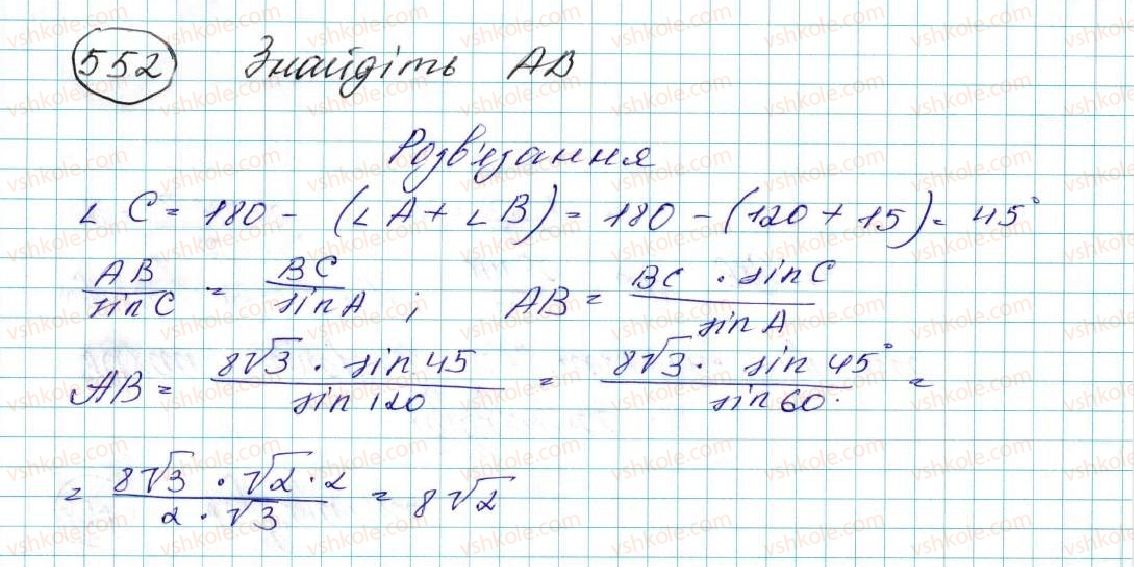 552 Знайдіть AB
Розв'язання
∠ C = 180 - (∠ A + ∠ B) = 180 - (120 + 15) = 45°
AB/sin C = BC/sin A ; AB = BC · sin C/sin A
AB = 8√3 · sin 45/sin 120 = 8√3 · sin 45°/sin 60° =
= 8√3 · √2 · 2/2 · √3 = 8√2
vshkole.com